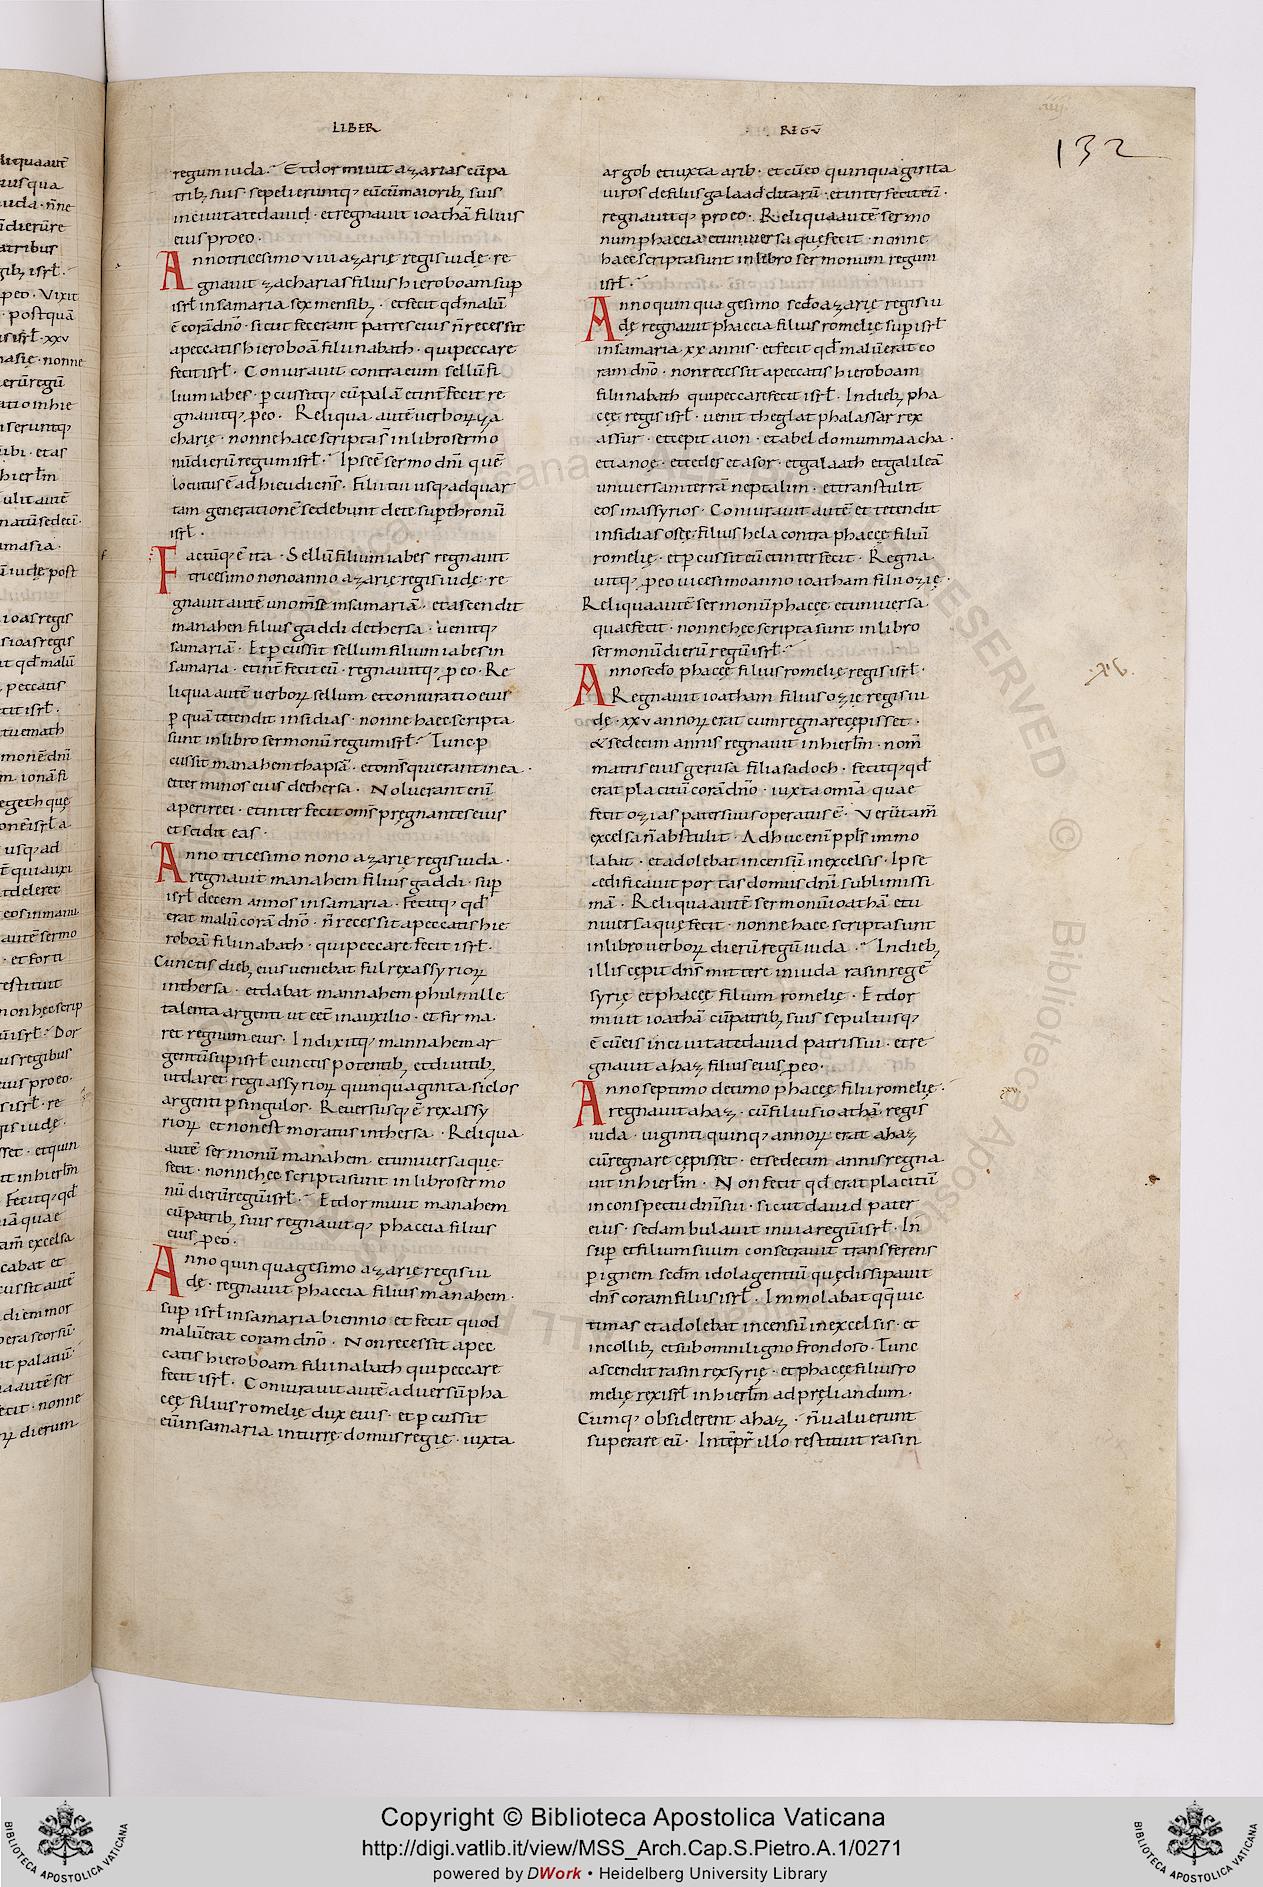 LIBER
regum iuda. Et dormiuit azarias cū pa
trib; suis sepelieruntq; eū cū maiorib; suis
inciuitate dauid. et regnauit ioathā filius
eius pro eo.
Anno tricesimo viii azarię regis iudę. re
gnauit zacharias filius hieroboam sup
isrł in samaria sex mensib;. et fecit qđ malū
ē corā dño. sicut fecerant patres eius ñ recessit
a peccatis hieroboā filii nabath. qui peccare
fecit isrł. Coniurauit contra eum sellū fi
lium iabes. pcussitq; eū palā et interfecit re
gnauitq; p eo. Reliqua autē uerborꝝ za
charię. nonne haec scripta st̄ in libro sermo
nū dierū regum isrł. Ipse ē sermo dñi quē
locutus ē ad hieu diens. Filii tui usq; ad quar
tam generationē sedebunt de te sup thronū
isrł.
Factūq; ē ita. Sellū filium iabes regnauit
tricesimo nono anno azarię regis iudę. re
gnauit autē uno mse in samariā. et ascendit
manahen filius gaddi de thersa. uenitq;
samariā. Et pcussit sellum filium iabes in
samaria. et intfecit eū. regnauitq; p eo. Re
liqua autē uerborꝝ sellum et coniuratio eius
p quā tetendit insidias. nonne haec scripta
sunt in libro sermonū regum isrł. Tunc p
cussit manahem thapsā. et oms qui erant in ea.
et terminos eius de thersa. Noluerant enī
aperire ei. et interfecit oms pręgnantes eius
et scidit eas.
Anno tricesimo nono azarię regis iuda.
regnauit manahem filius gaddi. sup
isrł decem annos in samaria. Fecitq; qđ
erat malū corā dño. ñ recessit a peccatis hie
roboā filii nabath. qui peccare fecit isrł.
Cunctis dieb; eius ueniebat ful rex assyriorꝝ
in thersa. et dabat mannahem phul mille
talenta argenti ut eēt in auxilio. et firma
ret regnum eius. Indixitq; mannahem ar
gentū sup isrł cunctis potentib; et diuitib;
ut daret regi assyriorꝝ quinquaginta siclos
argenti p singulos. Reuersusq; ē rex assy
riorꝝ et non est moratus in thersa. Reliqua
autē sermonū manahem et uniuersa quę
fecit. nonne hęc scripta sunt in libro sermo
nū dierū regū isrł. Et dormiuit manahem
cū patrib; suis regnauitq; phaceia filius
eius p eo.
Anno quinquagesimo azarię regis iu
dę. regnauit phaceia filius manahem.
sup isrł in samaria biennio et fecit quod
malū erat coram dño. Non recessit a pec
catis hieroboam filii nabath qui peccare
fecit isrł. Coniurauit autē aduersū pha
cęę filius romelię dux eius. et pcussit
eū in samaria in turrę domus regię. iuxta
REGŪ
132
argob et iuxta arib. et cū eo quinquaginta
uiros de filiis galaad ditarū. et interfecit eū.
regnauitq; pro eo. Reliqua autē sermo
num phaceia et uniuersa quę fecit. nonne
haec scripta sunt in libro sermonum regum
isrł.
Anno quinquagesimo sedo azarię regis iu
dę regnauit phaceia filius romelię sup isrł
in samaria xx annis. et fecit qđ malū erat co
ram dño. non recessit a peccatis hieroboam
filii nabath qui peccare fecit isrł. In dieb; pha
cęę regis isrł. uenit theglat phalassar rex
assur. et cepit aion. et abel domum maacha.
et ianoę. et cedes et asor. et galaath et galileā
uniuersam terrā neptalim. et transtulit
eos in assyrios. Coniurauit autē et tetendit
insidias oseę filius hela contra phacęę filiū
romelię. et pcussit eū et interfecit. Regna
uitq; p eo uicesimo anno ioatham filii ozię.
Reliqua autē sermonū phacęę et uniuersa
quae fecit. nonne hęc scripta sunt in libro
sermonū dierū regū isrł.
Anno sedo phacęę filius romelię regis isrł.
Regnauit ioatham filius ozię regis iu
dę. xxv annorꝝ erat cum regnare cępisset.
& sedecim annis regnauit in hierłm. nom̄
matris eius gerusa filia sadoch. Fecitq; qđ
erat placitū corā dño. iuxta omīa quae
fecit ozias pater suus operatus ē. Verūtam̄
excelsa ñ abstulit. Adhuc enī pplś immo
labat. et adolebat incensū in excelsis. Ipse
aedificauit portas domus dñi sublimissi
mā. Reliqua autē sermonū ioathā et u
niuersa quę fecit. nonne haec scripta sunt
in libro uerborꝝ dierū regū iuda. In dieb;
illis cępit dñs mittere in iuda rasin regē
syrię et phacęę filium romelię. Et dor
miuit ioathā cū patrib; suis sepultusq;
ē cū eis in ciuitate dauid patris sui. et re
gnauit ahaz filius eius p eo.
Anno septimo decimo phacęę filii romelię.
regnauit ahaz. cū filius ioathā regis
iuda. uiginti quinq; annorꝝ erat ahaz
cū regnare cępisset. et sedecim annis regna
uit in hierłm. Non fecit qđ erat placitū
in conspectu dñi sui. sicut dauid pater
eius. sed ambulauit in uia regū isrł. In
sup et filium suum consecrauit transferens
p ignem sedm idola gentiū quę dissipauit
dñs coram filiis isrł. Immolabat qq; uic
timas et adolebat incensū in excelsis. et
in collib; et sub omni ligno frondoso. Tunc
ascendit rasin rex syrię. et phacęę filius ro
melię rex isrł in hierłm ad pręliandum.
Cumq; obsiderent ahaz. ñ ualuerunt
superare eū. In tēpr̄ illo restituit rasin
Copyright © Biblioteca Apostolica Vaticana
http://digi.vatlib.it/view/MSS_Arch.Cap.S.Pietro.A.1/0271
powered by DWork • Heidelberg University Library
BIBLIOTECA APOSTOLICA VATICANA
BIBLIOTECA APOSTOLICA VATICANA